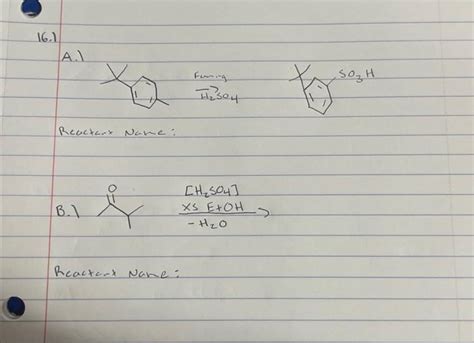 16.)
A.)
Fuming
H2SO4
SO3H
Reactant Name:
O
B.)
[H2SO4]
XS EtOH
-H2O
Reactant Name: